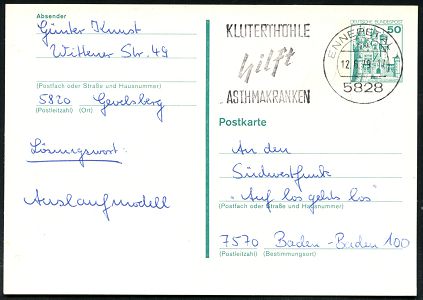 Absender
Günter Kunst
Wittener Str. 49
(Postfach oder Straße und Hausnummer)
5820 Gevelsberg
(Postleitzahl) (Ort)
Lösungswort:
Auslaufmodell
KLUTERTHÖHLE
hilft
ASTHMAKRANKEN
ENNEPETAL
5828
DEUTSCHE BUNDESPOST
50
Postkarte
An den
Südwestfunk
"Auf los gehts los"
(Postfach oder Straße und Hausnummer)
7570 Baden-Baden 100
(Postleitzahl) (Bestimmungsort)